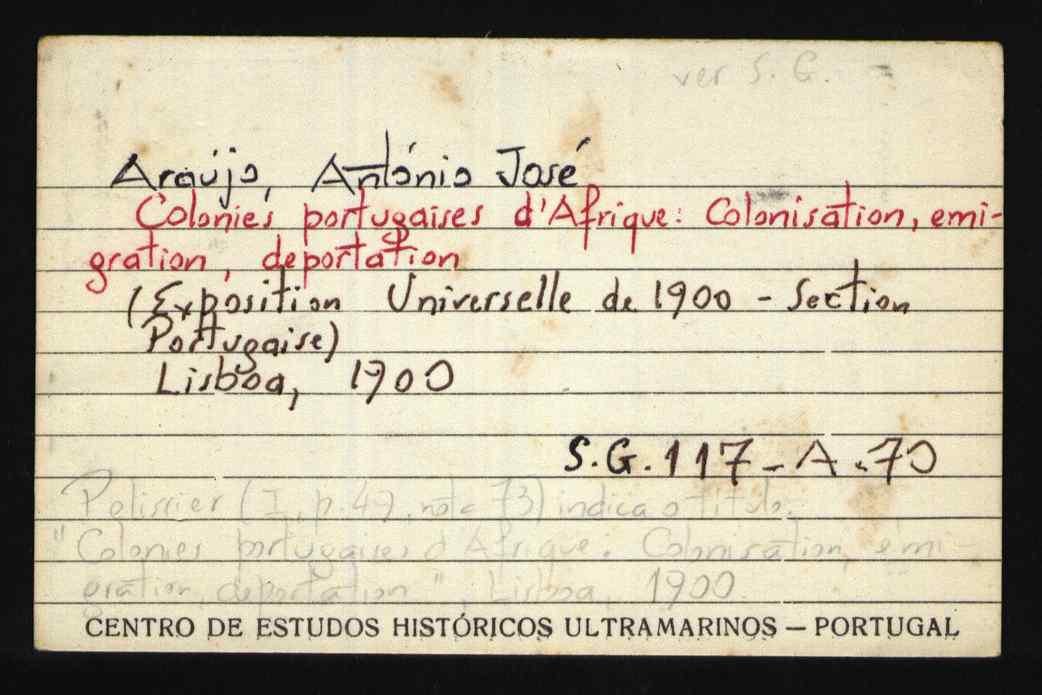 ver S. G.
Araújo, António José
Colonies portugaises d'Afrique: Colonisation, emi-
gration, deportation
(Exposition Universelle de 1900 - Section
Portugaise)
Lisboa, 1900
S.G. 117-A-70
Pelissier (I, p. 49, nota 73) indica o titulo:
"Colonies portugaises d'Afrique. Colonisation, émi-
gration, deportation", Lisboa, 1900.
CENTRO DE ESTUDOS HISTÓRICOS ULTRAMARINOS — PORTUGAL